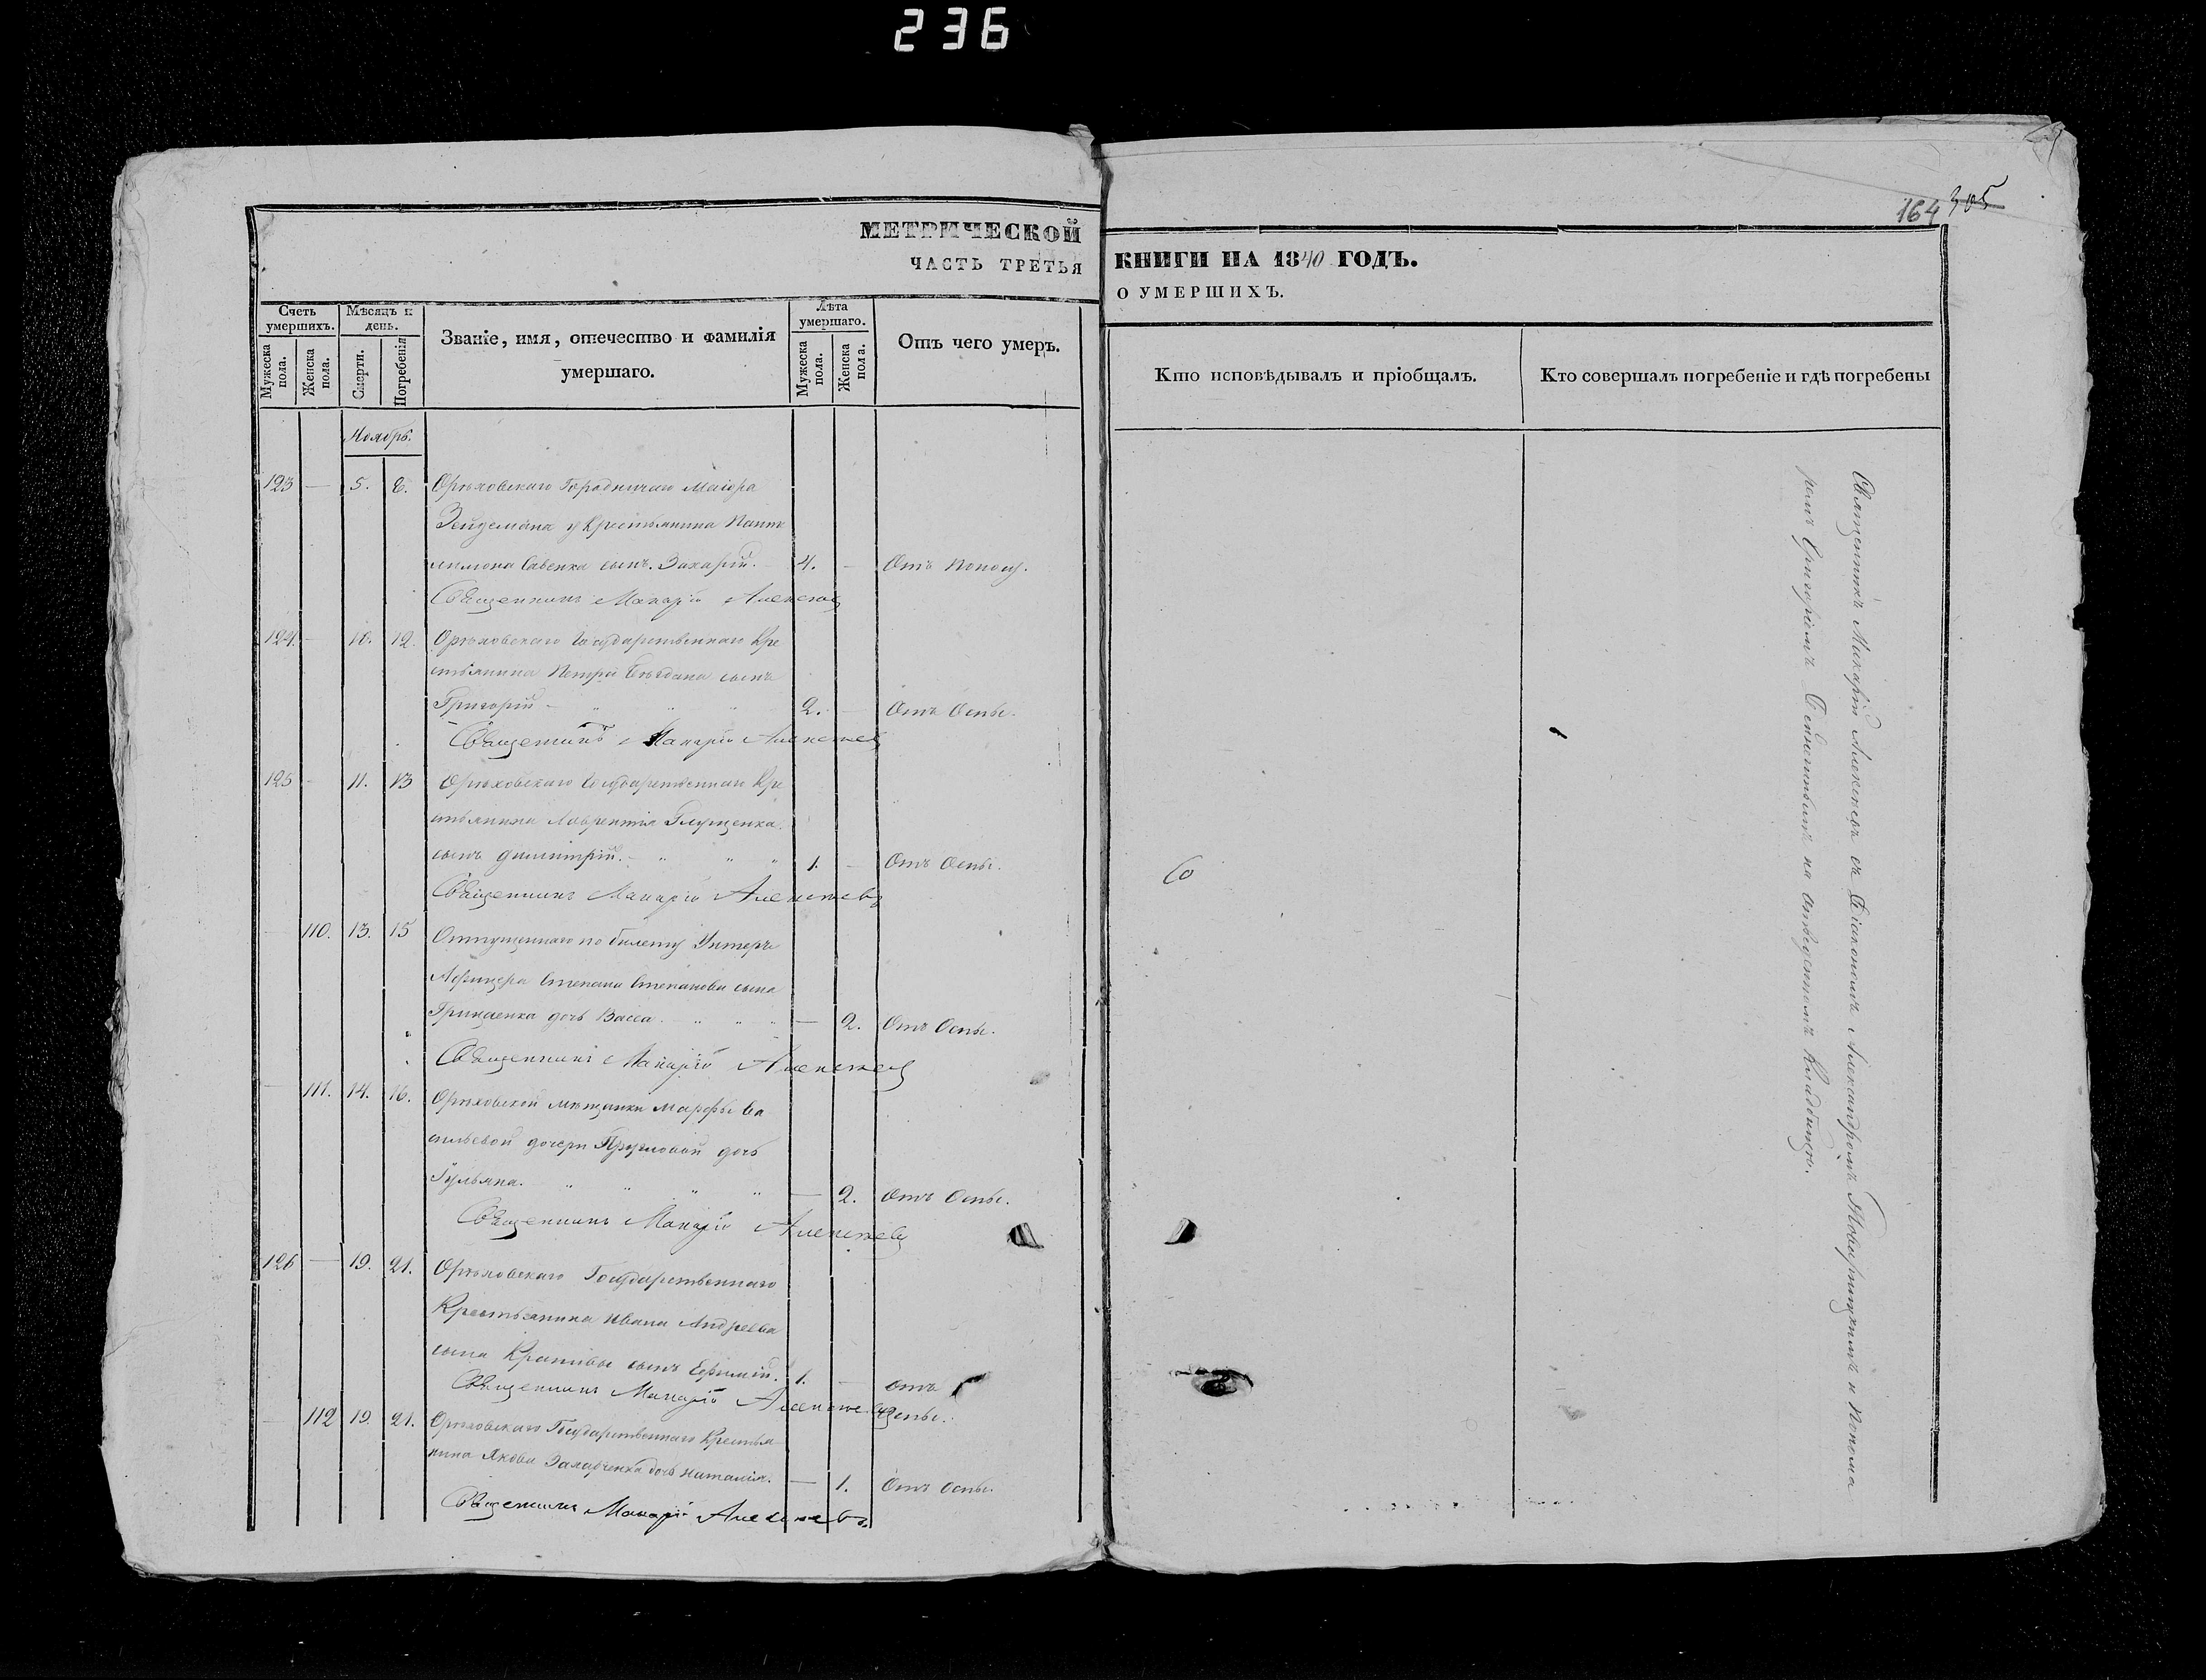 236
164 305
МЕТРИЧЕСКОЙ КНИГИ НА 1840 ГОДЪ.
ЧАСТЬ ТРЕТЬЯ О УМЕРШИХЪ.
Счетъ умершихъ.
Мужеска пола.
Женска пола.
Мѣсяцъ и день.
Смерти.
Погребенія
Званіе, имя, отечество и фамилія
умершаго.
Лѣта умершаго.
Мужеска пола.
Женска пола.
Отъ чего умеръ.
Кто исповѣдывалъ и пріобщалъ.
Кто совершалъ погребеніе и гдѣ погребены
Ноябрь.
123 — 5. 6. Орѣховскаго Городничаго Маіора
Зейдемана Крестьянина Пante
лимона Савенка сынъ Захарій. 4. — Отъ
Священникъ Макарій Алексѣевъ
124. — 10. 12. Орѣховскаго Государственнаго Кре
стьянина Петра сынъ
Григорій — 2. — Отъ Оспы.
Священникъ Макарій Алексѣевъ
125 — 11. 13 Орѣховскаго Государственнаго Кре
стьянина Лаврентія Глущенка
сынъ Димитрій. — 1. — Отъ Оспы.
Священникъ Макарій Алексѣевъ
— 110. 13. 15 Отпущеннаго по билету Унтеръ
Афицера Степана Степанова сына
Грищенка дочь Васса. — 2. Отъ Оспы.
Священникъ Макарій Алексѣевъ
— 111. 14. 16. Орѣховской мѣщанки Марфы Ва
сильевой дочери дочь
Іульяна. — 2. Отъ Оспы.
Священникъ Макарій Алексѣевъ
126 — 19. 21. Орѣховскаго Государственнаго
Крестьянина Ивана Андреева
сына Кропивы сынъ Ефимій. 1. — Отъ
Священникъ Макарій Алексѣевъ Оспы.
— 112 19. 21. Орѣховскаго Государственнаго Крестья
нина Якова Захарченка дочь Наталія. — 1. Отъ Оспы.
Священникъ Макарій Алексѣевъ
Со
Священникъ Макарій Алексѣевъ съ Діакономъ Александромъ и Понома
ремъ Григоріемъ на отведенномъ Кладбищѣ.